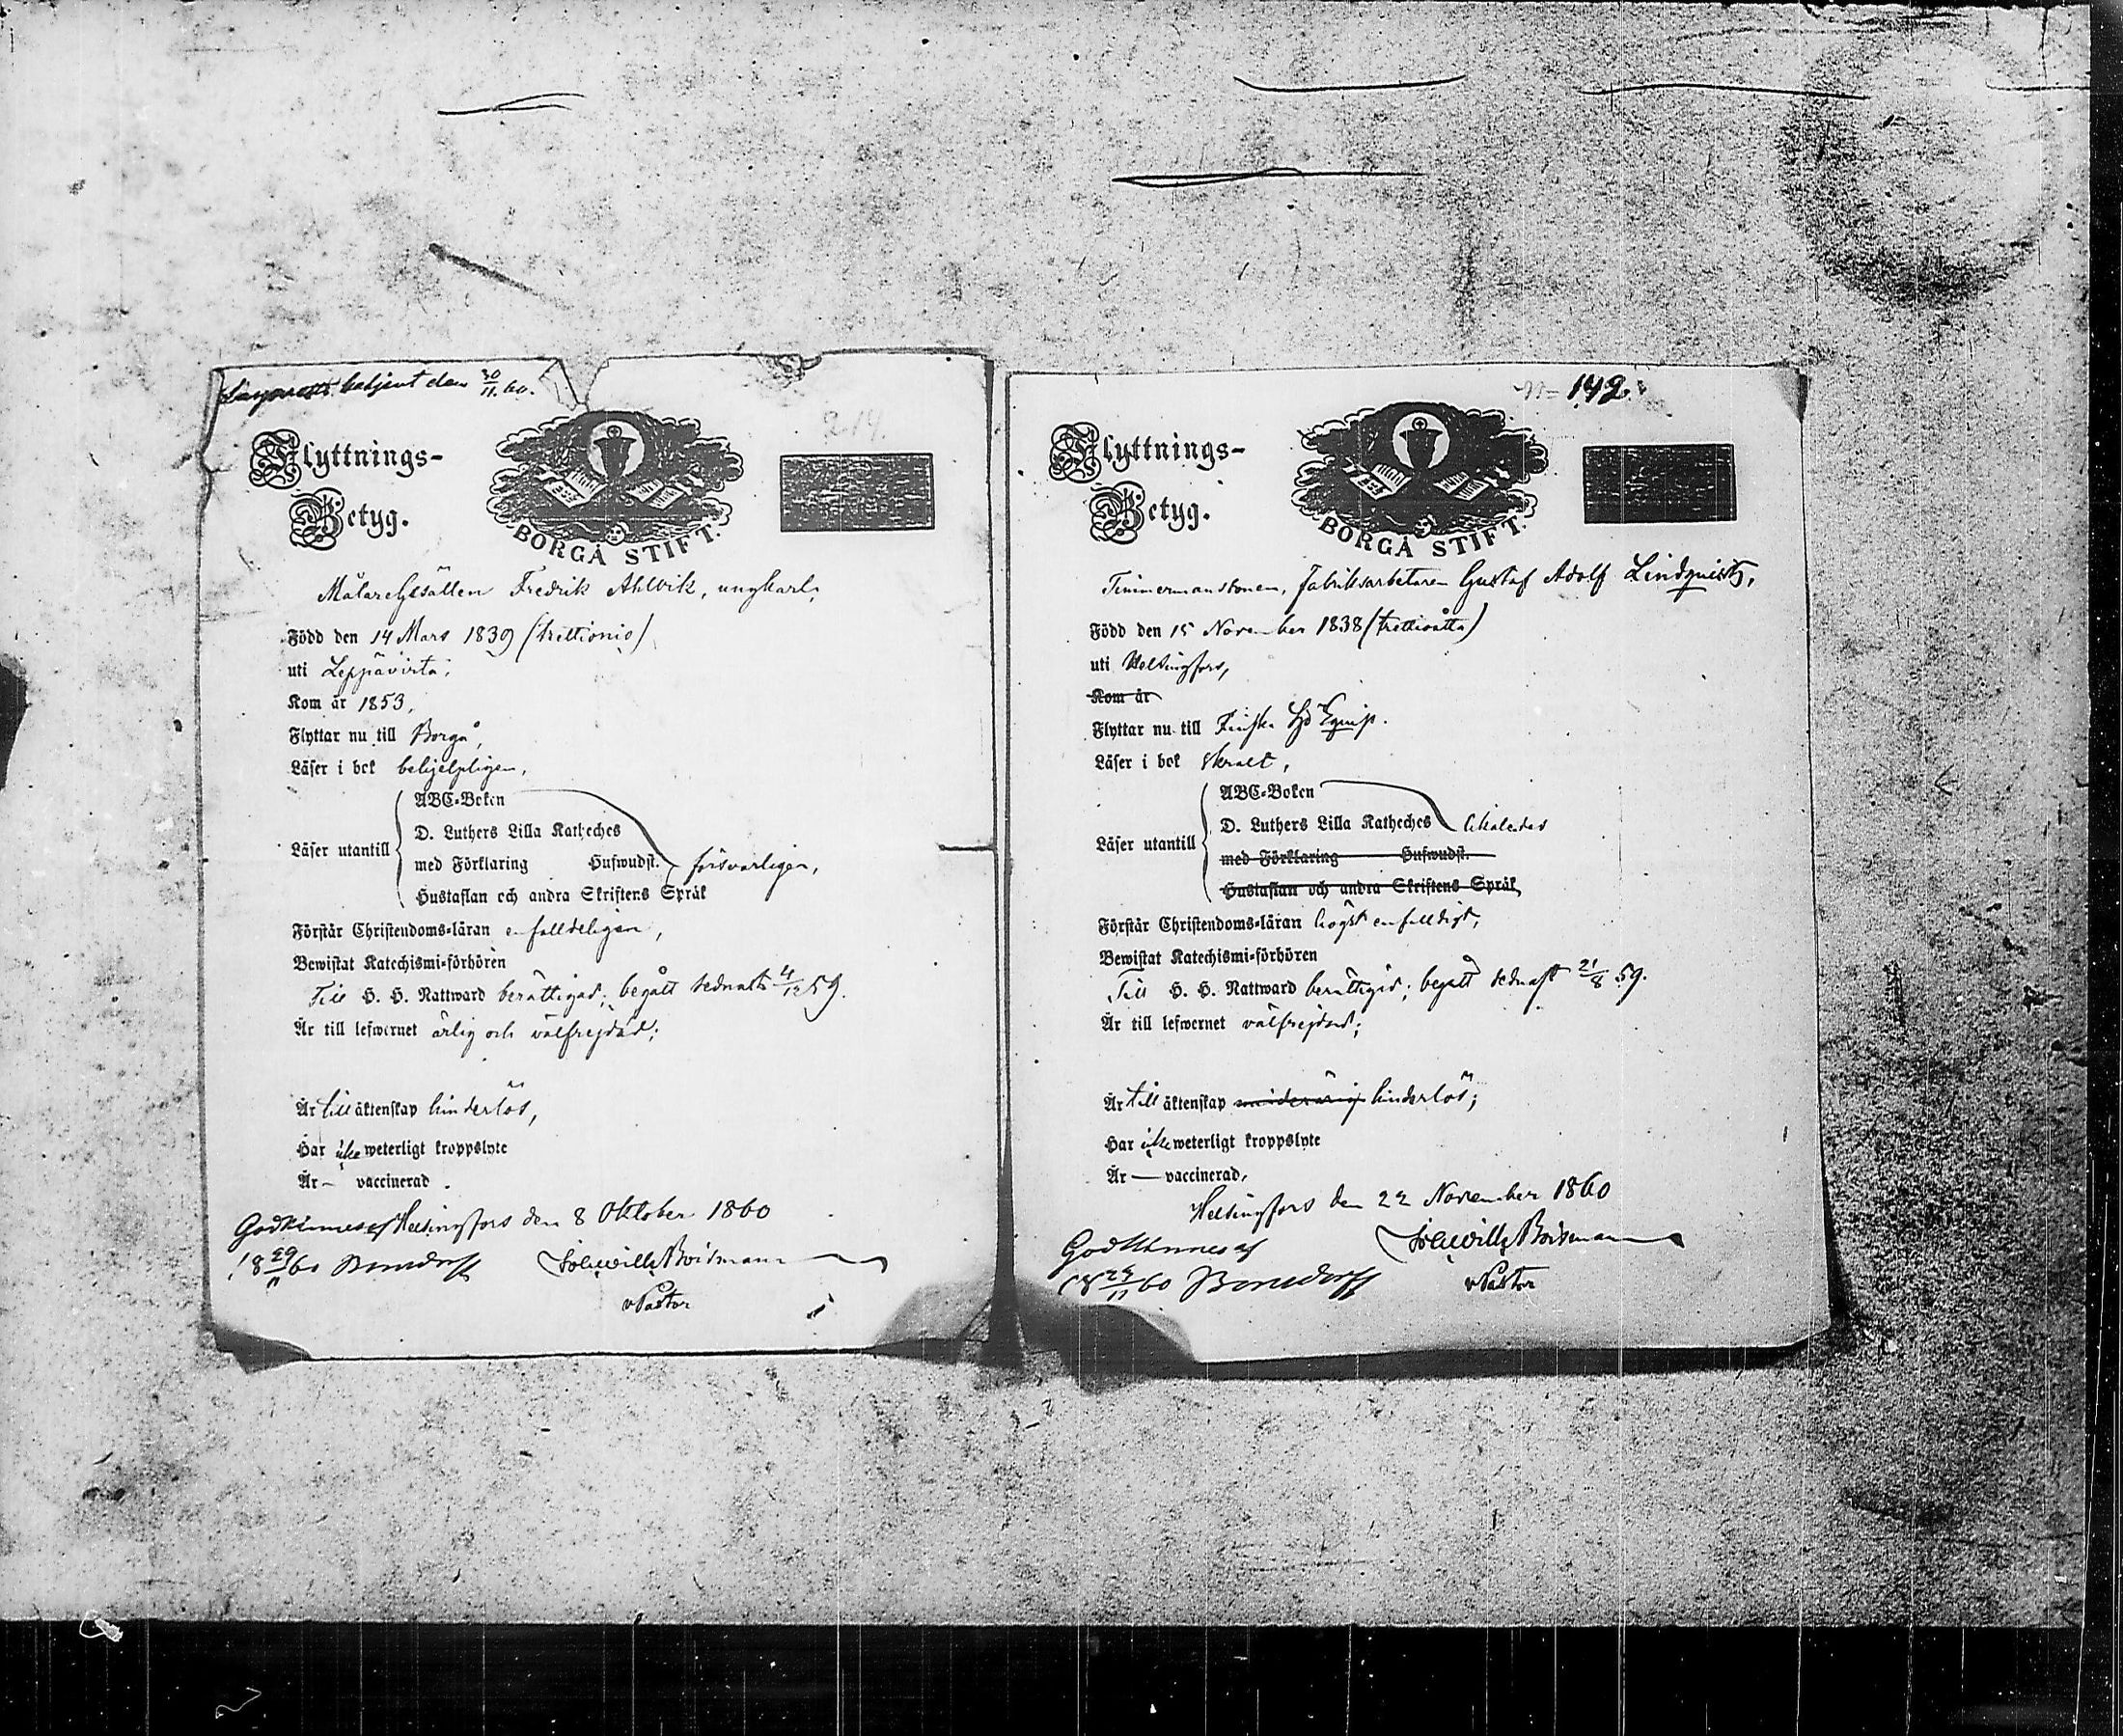 begient den 30/11.60.
Flyttnings-
Betyg.
BORGÅ STIFT.
MålareGesällen Fredrik Ahlvik, ungkarl,
Född den 14 Mars 1839 (trettionio)
uti Leppävirta,
Kom år 1853,
Flyttar nu till Borgå,
Läser i bok behjelpligen,
ABC-Boken
D. Luthers Lilla Katheches
Läser utantill
med Förklaring Hufwudst. försvarligen,
Hustaflan och andra Skriftens Språk
Förstår Christendoms-läran enfalldeligen,
Bewistat Katechismi-förhören
Till H. H. Nattward berättigad; begått sednast 4/12 59.
Är till lefwernet ärlig och välfrejdad;
Är till äktenskap hinderlös,
Har icke weterligt kroppslyte
Är — vaccinerad.
Godkännes af Helsingfors den 8 Oktober 1860
18 29/11 60 Bonsdorff Boisman
v Pastor
142.
Flyttnings-
Betyg.
BORGÅ STIFT.
Timmermanssonen, fabriksarbetaren Gustaf Adolf Lindqvist,
Född den 15 November 1838 (trettioåtta)
uti Helsingfors,
Kom år
Flyttar nu till Finska Equip.
Läser i bok skralt,
ABC-Boken
D. Luthers Lilla Katheches likaledes
Läser utantill
med Förklaring Hufwudst.
Hustaflan och andra Skriftens Språk
Förstår Christendoms-läran högst enfalldigt,
Bewistat Katechismi-förhören
Till H. H. Nattward berättigad; begått sednast 21/8 59.
Är till lefwernet välfrejdad;
Är till äktenskap hinderlös;
Har icke weterligt kroppslyte
Är — vaccinerad,
Helsingfors den 22 November 1860
Godkännes af Boisman
18 29/11 60 Bonsdorff v Pastor